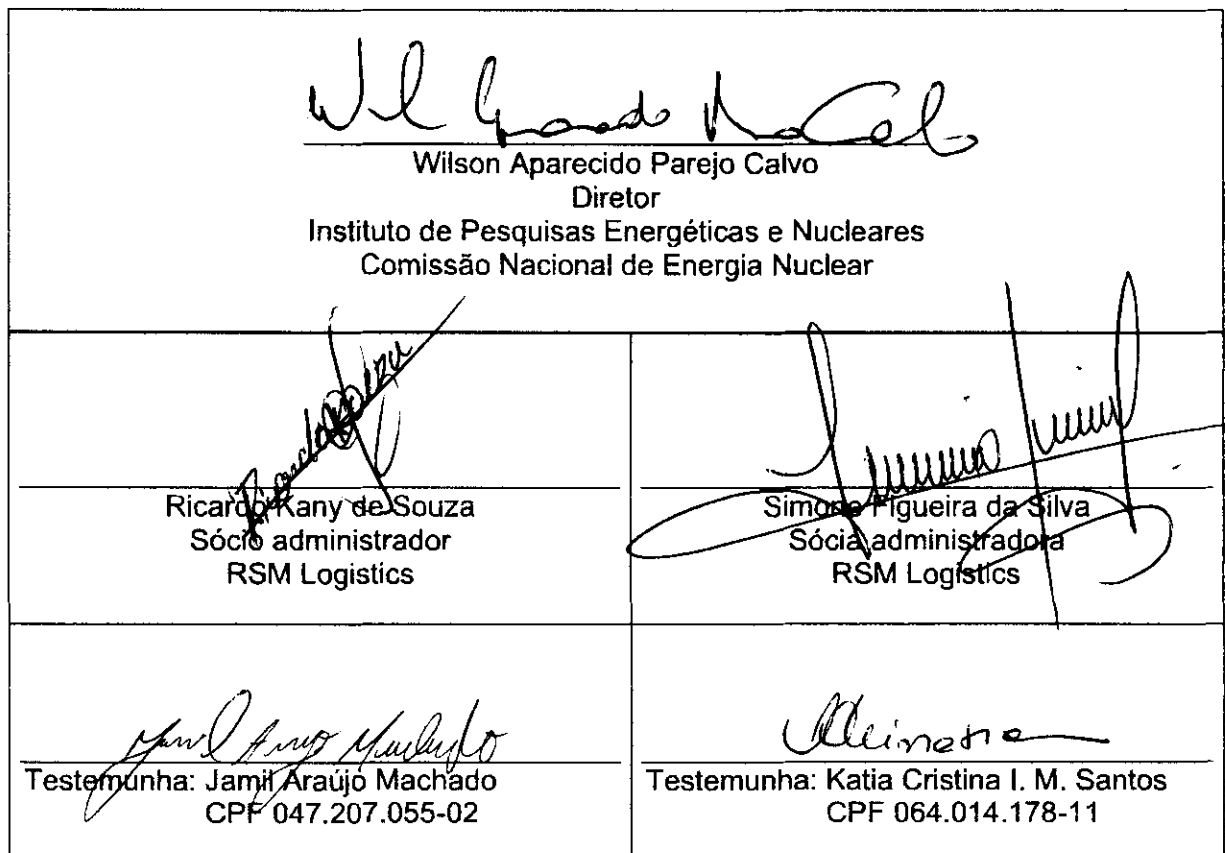 Wilson Aparecido Parejo Calvo
Diretor
Instituto de Pesquisas Energéticas e Nucleares
Comissão Nacional de Energia Nuclear
Ricardo Kany de Souza
Sócio administrador
RSM Logistics
Simone Figueira da Silva
Sócia administradora
RSM Logistics
Jamil Araujo Machado
Testemunha: Jamil Araújo Machado
CPF 047.207.055-02
Testemunha: Katia Cristina I. M. Santos
CPF 064.014.178-11